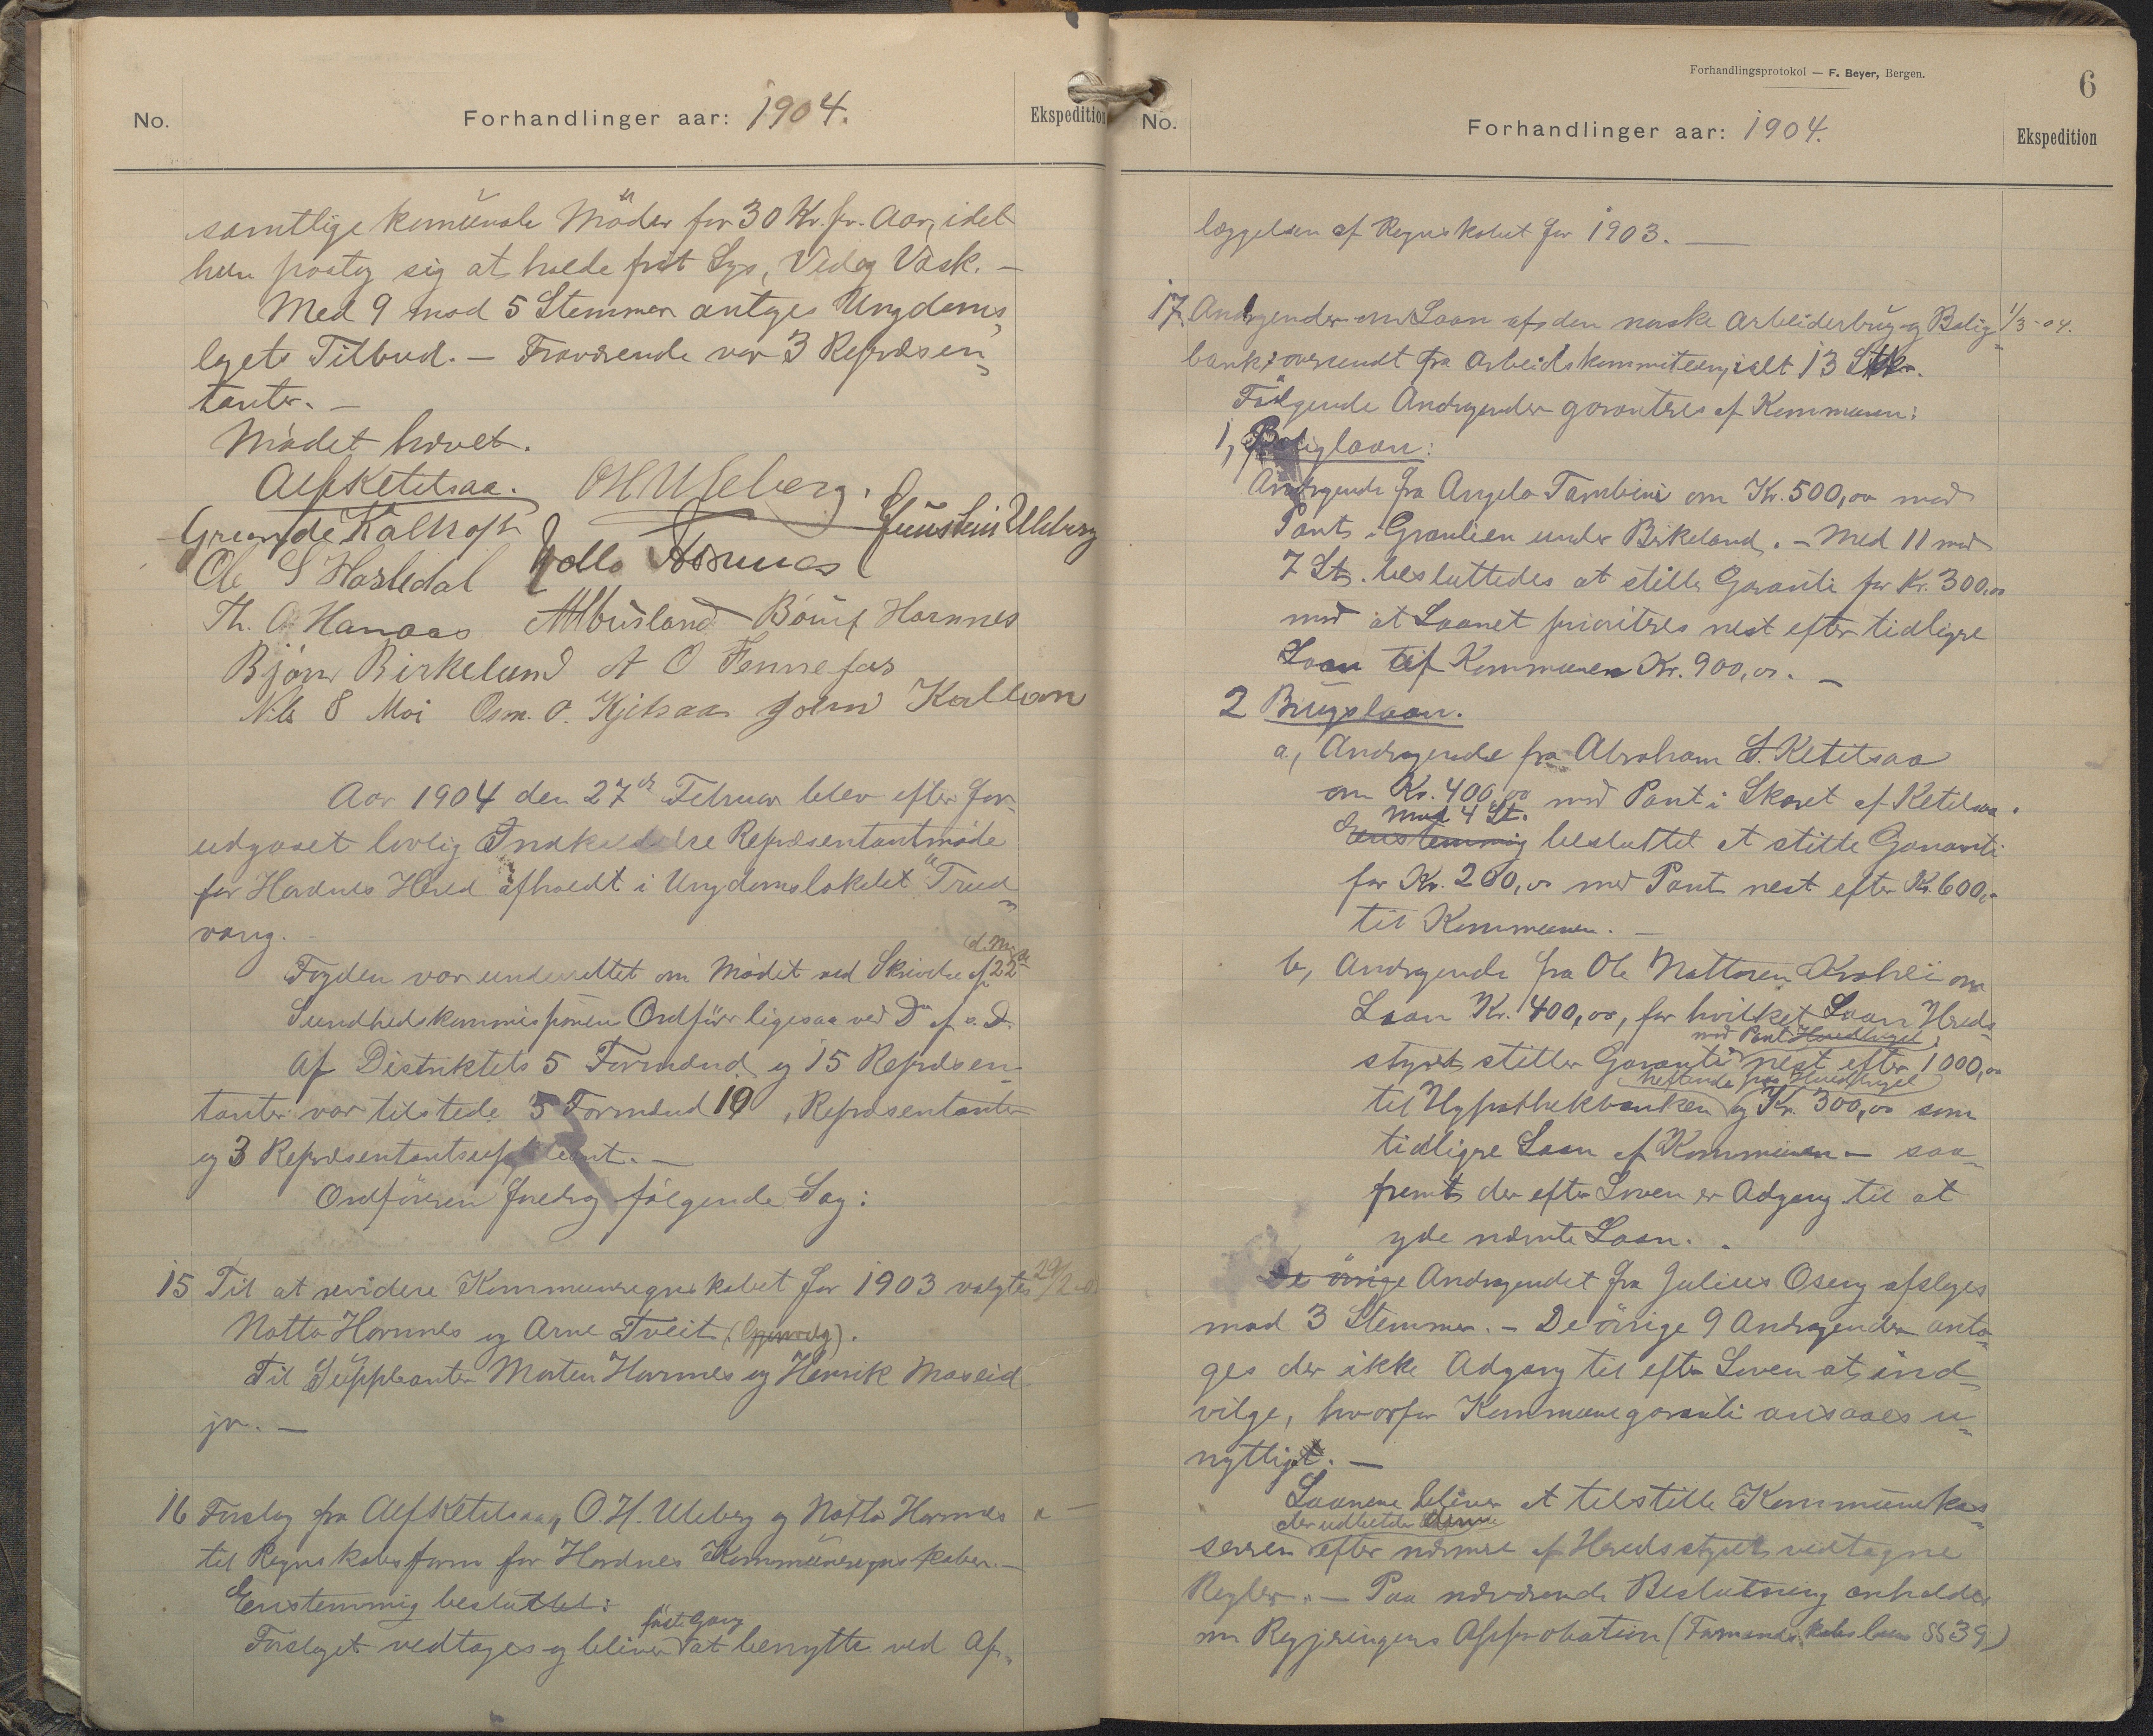 No.
Forhandlinger aar: 1904.
Ekspedition
samtlige kommunale Möder for 30 Kr. pr. Aar, idet
hun paatog sig at holde frit Lys, Ved og Vask. —
Med 9 mod 5 Stemmer antoges Ungdoms-
lagets Tilbud. — Fraværende var 3 Repræsen-
tanter. —
Mødet hævet.
Alf Ketelsaa. O H Uleberg.
Gunstein Uleberg
Kalhoft
Ole S Hasledal Notto Hornnes
Th. O Hanaas A Abusland Hornnes
Bjørn Birkeland A O Fennefos
Nils S Moi Osm. O. Kjetsaa
Aar 1904 den 27de Februar blev efter for-
udgaaet lovlig Indkaldelse Repræsentantmøde
for Hordnes Hered afholdt i Ungdomslokalet "Trud-
vang.
Fogden var underrettet om Mødet ved Skrivelse af 22de d. M.
Sundhedskommissionens Ordfører ligesaa ved Do af s. D.
Af Distriktets 5 Formænd og 15 Repræsen-
tanter var tilstede 5 Formænd 10 Repræsentanter
og 3 Repræsentantsuppleant. —
Ordföreren foredrog fölgende Sag:
15 Til at revidere Kommuneregnskabet for 1903 valgtes 29/2 04
Notto Hornnes og Arne Tveit (Gjenvalg).
Til Suppleanter Morten Hornnes og Henrik Moseid
jr. —
16 Forslag fra Alf Ketelsaa, O. H. Uleberg og Notto Hornnes
til Regnskabsform for Hordnes Kommuneregnskaber. —
Enstemmig besluttet:
Forslaget vedtages og bliver første Gang at benytte ved Af-
Forhandlingsprotokol — F. Beyer, Bergen.
6
No.
Forhandlinger aar: 1904.
Ekspedition
læggelsen af Regnskabet for 1903. —
17. Andragender om Laan af den norske Arbeiderbrug- og Bolig- 1/3-04.
bank, oversendt fra Arbeidskommiteen, ialt 13 Stkr.
Følgende Andragender garanteres af Kommunen:
1, Boliglaan:
Andragende fra Angelo Tambini om Kr. 500,00 med
Pant i Granlien under Birkeland. — Med 11 mod
7 St. besluttedes at stille Garanti for Kr. 300,00
mod at Laanet prioriteres nest efter tidligre
Laan af Kommunen Kr. 900,00. —
2 Brugslaan.
a, Andragende fra Abraham S. Ketelsaa
om Kr. 400,00 med Pant i Skaret af Ketelsaa.
mod 4 St.
Enstemmig besluttet at stille Garanti
for Kr. 200,00 med Pant nest efter Kr. 600,-
til Kommunen. —
b, Andragende fra Ole Nattosen om
Laan Kr. 400,00, for hvilket Laan Hereds-
med Pant
styret stiller Garanti nest efter 1000,00
heftende paa
til Hypothekbanken og Kr. 300,00 som
tidligre Laan af Kommunen — saa-
fremt der efter Loven er Adgang til at
yde nævnte Laan.
De övrige Andragendet fra Julius Oseng afslages
mod 3 Stemmer. — De övrige 9 Andragender anta-
ges der ikke Adgang til efter Loven at ind-
vilge, hvorfor Kommunegaranti ansaaes u-
nyttigt. —
Laanene bliver at tilstille Kommunekas-
der udbetaler
sereren efter nærmere af Heredsstyret vedtagne
Regler. — Paa nærværende Beslutning anholdes
om Regjeringens Approbation (Formandskabsloven §§ 39)